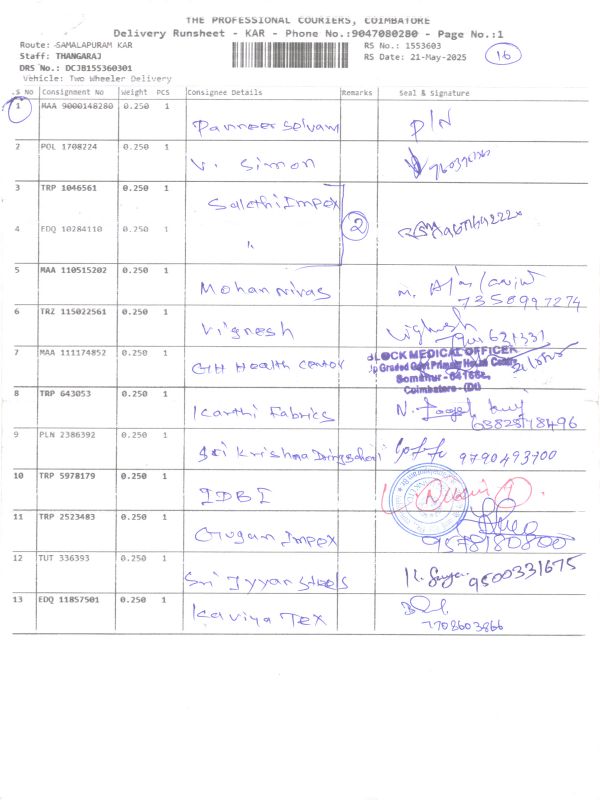 THE PROFESSIONAL COURIERS, COIMBATORE
Delivery Runsheet - KAR - Phone No.:9047080280 - Page No.:1
Route: -SAMALAPURAM KAR
RS No.: 1553603
16
Staff: THANGARAJ
RS Date: 21-May-2025
DRS No.: DCJB155360301
Vehicle: Two Wheeler Delivery
.S No Consignment No Weight PCS Consignee Details Remarks Seal & Signature
1 MAA 9000148280 0.250 1
Panneerselvam P/N
2 POL 1708224 0.250 1
V. Simon
3 TRP 1046561 0.250 1
Sakthi Impex
2
4 EDQ 10284110 0.250 1
"
5 MAA 110515202 0.250 1
Mohan nivas
7358997274
6 TRZ 115022561 0.250 1
Vignesh Vighesh
7 MAA 111174852 0.250 1
GH Health Centor
BLOCK MEDICAL OFFICER
Up Graded Govt Primary Health Centre
Somanur - 641668,
Coimbatore - (Dt)
8 TRP 643053 0.250 1
Karthi Fabrics
9 PLN 2386392 0.250 1
Sri Krishna 9790493700
10 TRP 5978179 0.250 1
IDBI
11 TRP 2523483 0.250 1
Gugan Impex
9578180800
12 TUT 336393 0.250 1
Sri Iyyan Steels
9500331675
13 EDQ 11857501 0.250 1
Kaviya Tex
7708603866